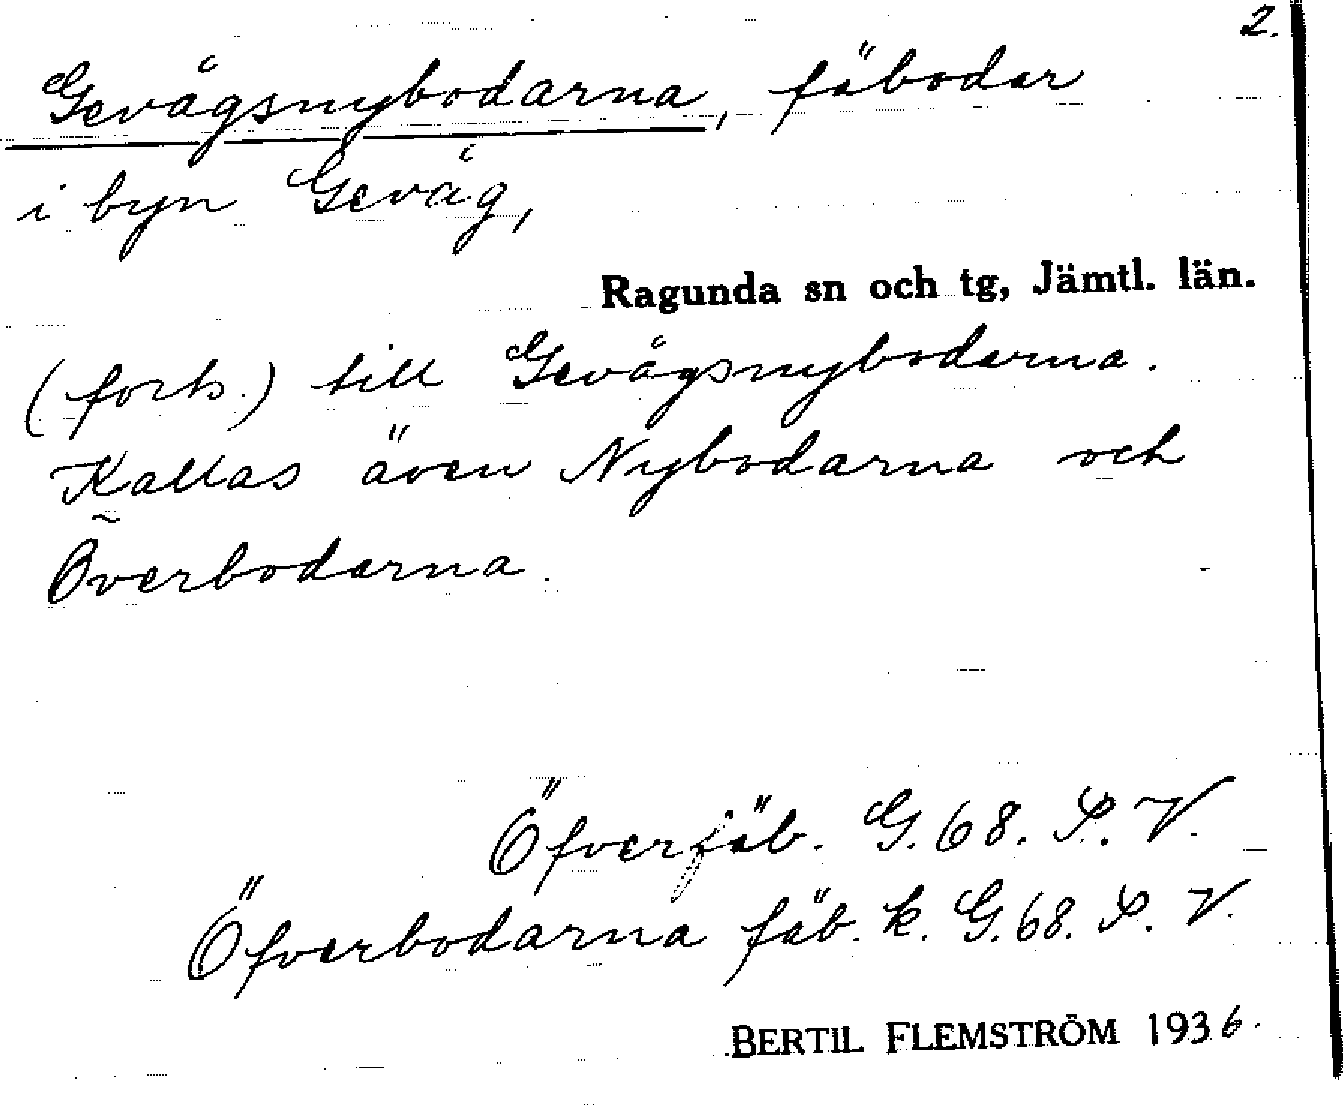 2.
Gevågsnybodarna, fäbodar
i byn Gevåg,
Ragunda sn och tg, Jämtl. län.
(forts.) till Gevågsnybodarna.
Kallas även Nybodarna och
Överbodarna.
Öfverfäb. G. 68. S. V.
Öfverbodarna fäb. k. G. 68. S. V.
BERTIL FLEMSTRÖM 1936.